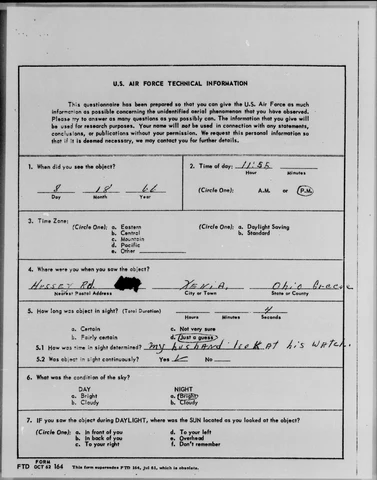 U.S. AIR FORCE TECHNICAL INFORMATION
This questionnaire has been prepared so that you can give the U.S. Air Force as much
information as possible concerning the unidentified aerial phenomenon that you have observed.
Please try to answer as many questions as you possibly can. The information that you give will
be used for research purposes. Your name will not be used in connection with any statements,
conclusions, or publications without your permission. We request this personal information so
that if it is deemed necessary, we may contact you for further details.
1. When did you see the object?
8 18 66
Day Month Year
2. Time of day: 11:55
Hour Minutes
(Circle One): A.M. or P.M.
3. Time Zone:
(Circle One): a. Eastern
b. Central
c. Mountain
d. Pacific
e. Other
(Circle One): a. Daylight Saving
b. Standard
4. Where were you when you saw the object?
Hussey Rd. XENIA, Ohio Greene
Nearest Postal Address City or Town State or County
5. How long was object in sight? (Total Duration) 4
Hours Minutes Seconds
a. Certain c. Not very sure
b. Fairly certain d. Just a guess
5.1 How was time in sight determined? my husband look AT his WATCH.
5.2 Was object in sight continuously? Yes ✓ No
6. What was the condition of the sky?
DAY NIGHT
a. Bright a. Bright
b. Cloudy b. Cloudy
7. IF you saw the object during DAYLIGHT, where was the SUN located as you looked at the object?
(Circle One): a. In front of you d. To your left
b. In back of you e. Overhead
c. To your right f. Don't remember
FORM
FTD OCT 62 164 This form supersedes FTD 164, Jul 61, which is obsolete.